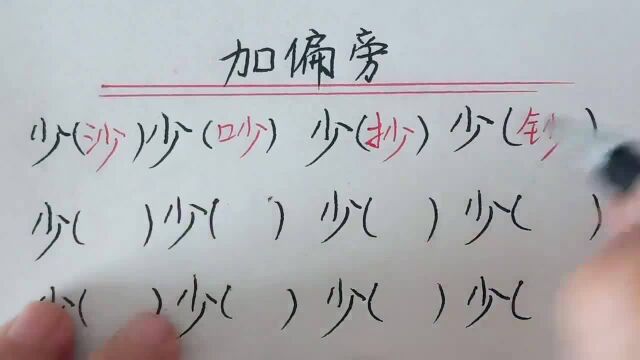 加偏旁
少(沙)少(吵)少(抄)少(钞)
少( )少( )少( )少( )
少( )少( )少( )少(